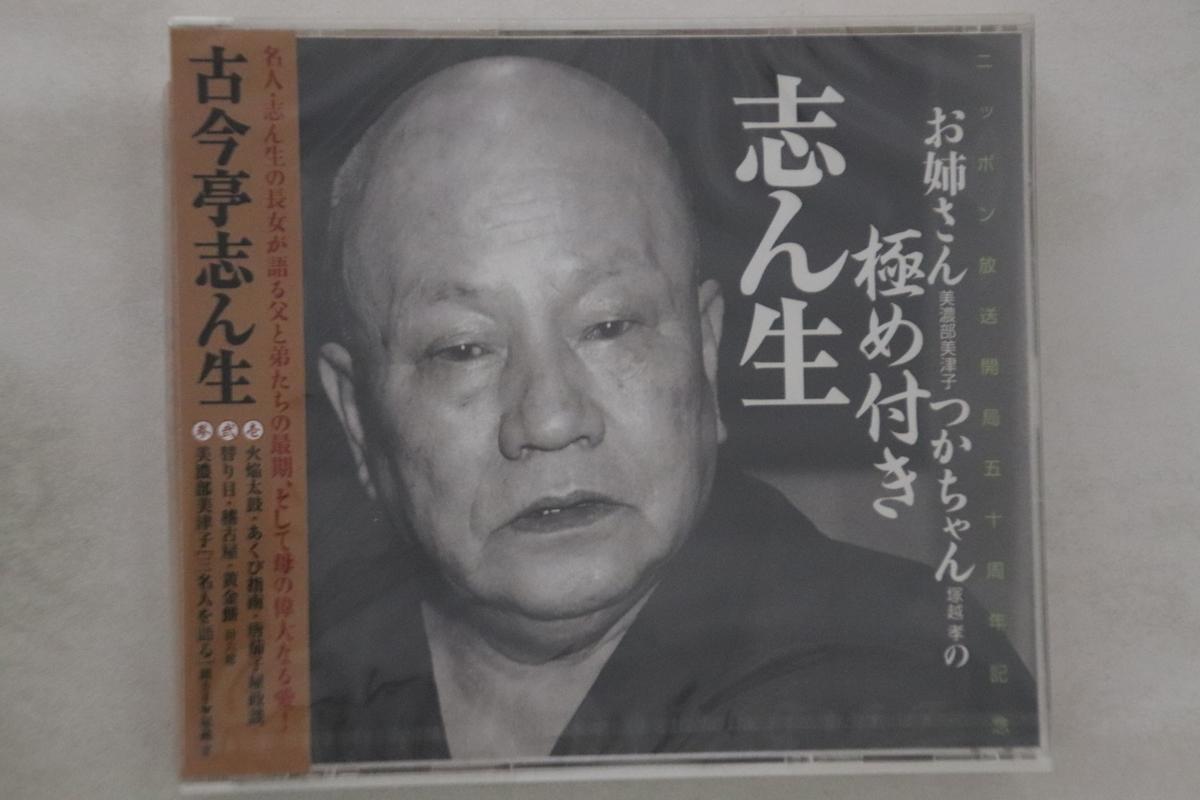 ニッポン放送開局五十周年記念
お姉さん美濃部美津子つかちゃん塚越孝の
極め付き
志ん生
名人・志ん生の長女が語る父と弟たちの最期、そして母の偉大なる愛！
古今亭志ん生
壱 火焔太鼓・あくび指南・唐茄子屋政談
弐 替り目・稽古屋・黄金餅
参 美濃部美津子「三名人を語る」